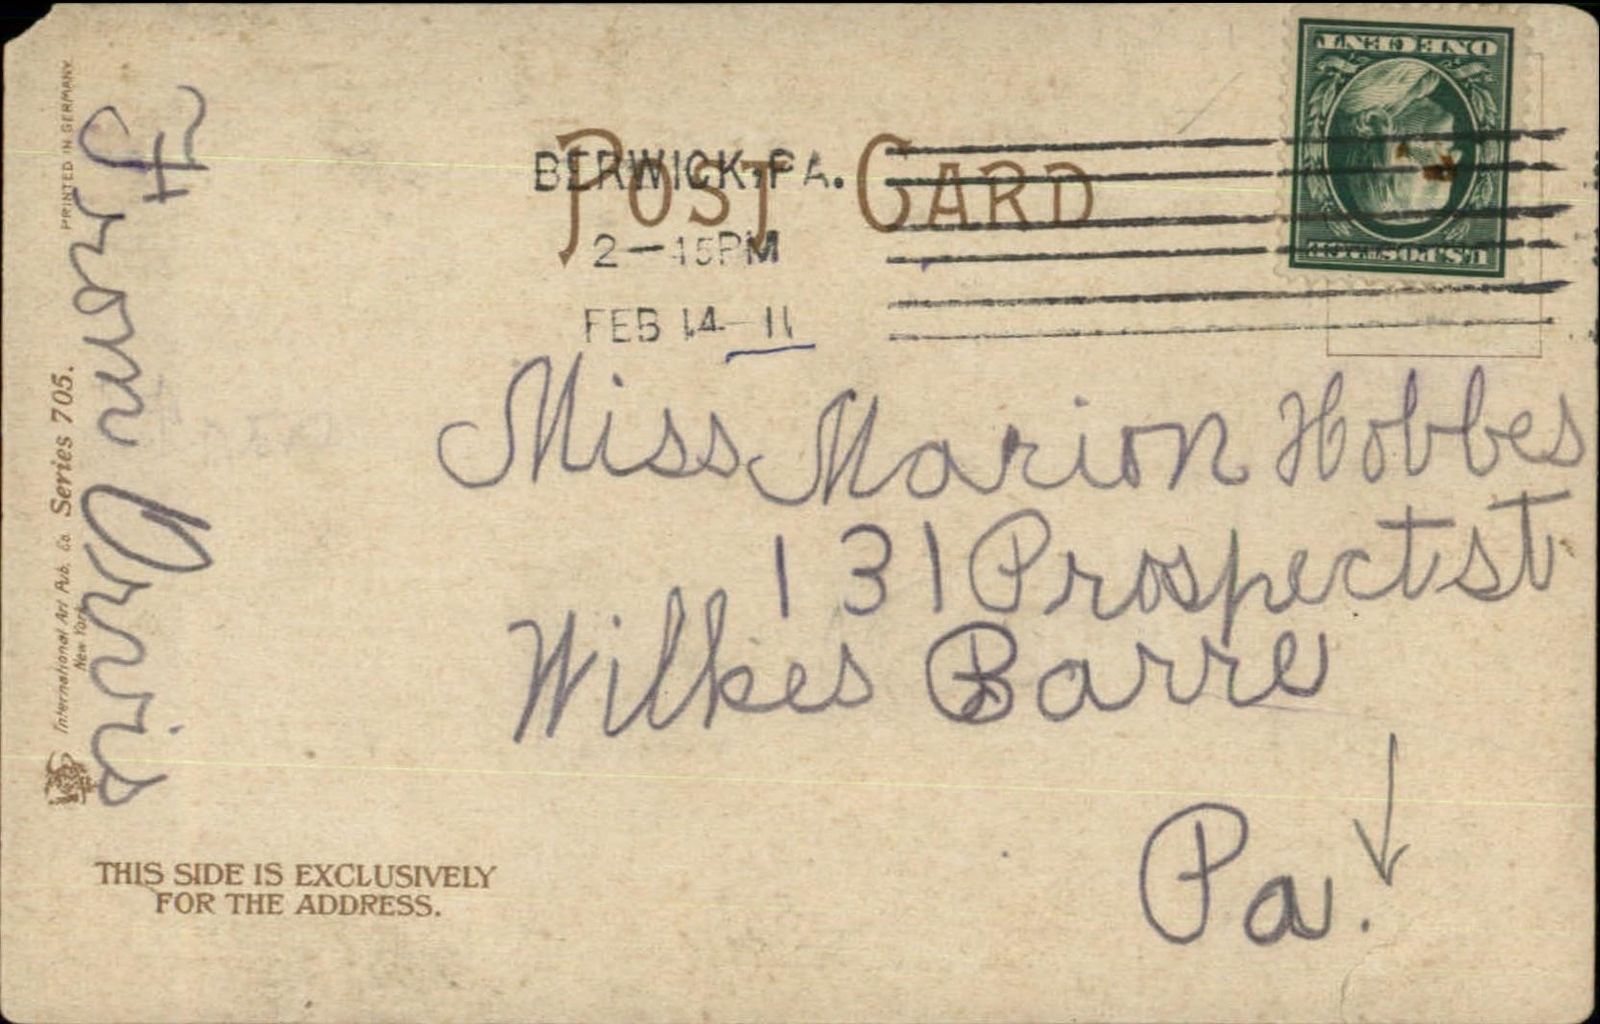 POST CARD
BERWICK, PA.
2-15PM
FEB 14 11
ONE CENT
U.S. POSTAGE
Miss Marion Hobbes
131 Prospect st
Wilkes Barre
Pa.
From
PRINTED IN GERMANY
Series 705.
International Art Pub. Co.
New York
THIS SIDE IS EXCLUSIVELY
FOR THE ADDRESS.